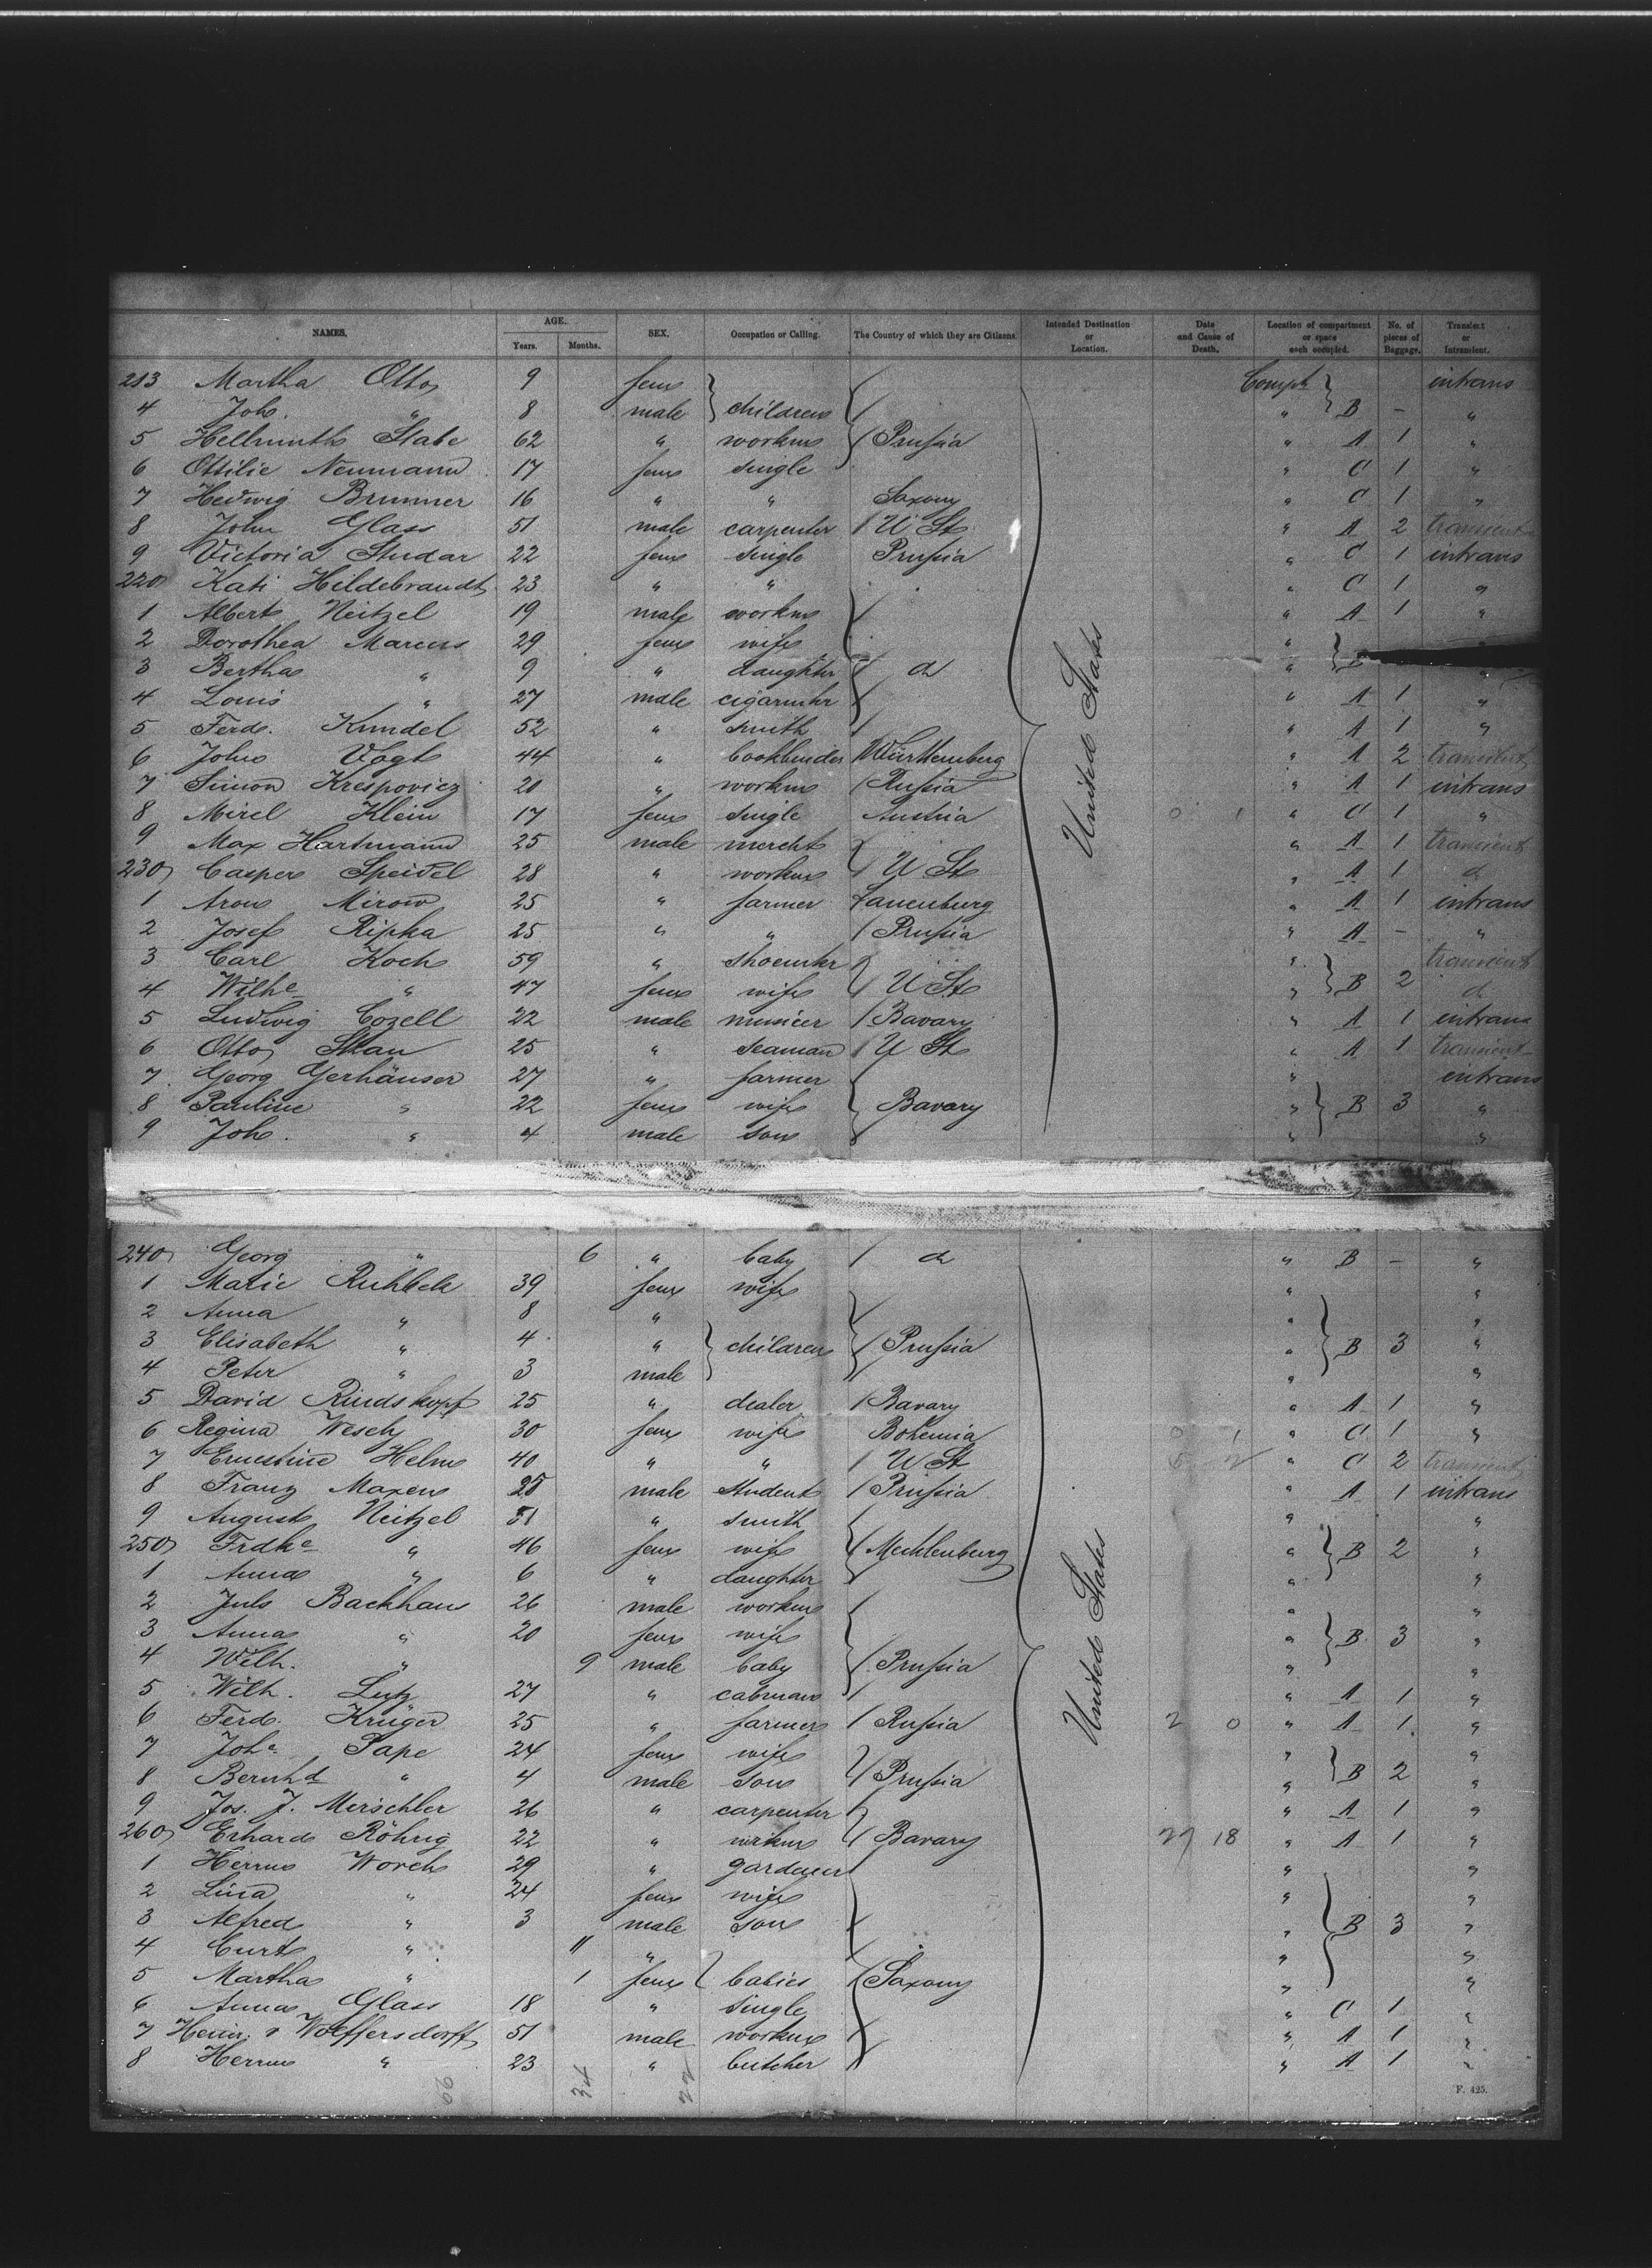 NAMES. AGE. Years. Months. SEX. Occupation or Calling. The Country of which they are Citizens. Intended Destination or Location. Date and Cause of Death. Location of compartment or space each occupied. No. of pieces of Baggage. Transient or Intransient.
213 Martha Otto 9 fem Compt intrans
4 Joh. " 8 male children " B - "
5 Hellmuth Stabe 62 " workm Prussia " A 1 "
6 Ottilie Neumann 17 fem single " C 1 "
7 Hedwig Brunner 16 " " Saxony " C 1 "
8 John Glass 51 male carpenter U St " A 2 transient
9 Victoria Studar 22 fem single Prussia " C 1 intrans
220 Kati Hildebrandt 23 " " " C 1 "
1 Albert Neitzel 19 male workm " A 1 "
2 Dorothea Marcus 29 fem wife " "
3 Bertha " 9 " daughter d " B "
4 Louis " 27 male cigarmkr " A 1 "
5 Ferd. Kundel 52 " smith " A 1 "
6 John Vogt 44 " bookbinder Württemberg " A 2 transient
7 Simon Krespovicz 20 " workm Russia " A 1 intrans
8 Mirel Klein 17 fem single Austria 0 1 " C 1 "
9 Max Hartmann 25 male mercht " A 1 transient
230 Casper Speidel 28 " workm U St " A 1 d
1 Aron Mirow 25 " farmer Lauenburg " A 1 intrans
2 Josef Ripka 25 " " Prussia " A - "
3 Carl Koch 59 " shoemkr " transient
4 Wilhe " 47 fem wife U St " B 2 d
5 Ludwig Cozell 22 male musicer Bavary " A 1 intrans
6 Otto 25 " seaman U St " A 1 transient
7 Georg Gerhäuser 27 " farmer " intrans
8 Pauline " 22 fem wife Bavary " B 3 "
9 Joh. " 4 male son " "
United States
240 Georg " 6 " baby d " B - "
1 Marie Ruhbeck 39 fem wife " "
2 Anna " 8 " " "
3 Elisabeth " 4 " children Prussia " B 3 "
4 Peter " 3 male " "
5 David Rindskopf 25 " dealer Bavary " A 1 "
6 Regina Wesely 30 fem wife Bohemia 0 1 " C 1 "
7 Ernestine Helm 40 " " U St " C 2 transient
8 Franz Maxen 25 male student Prussia " A 1 intrans
9 August Neitzel 51 " smith " "
250 Frdke " 46 fem wife Mecklenburg " B 2 "
1 Anna " 6 " daughter " "
2 Juls Backhaus 26 male workm " "
3 Anna " 20 fem wife " B 3 "
4 Wilh. " 9 male baby Prussia " "
5 Wilh. Lutz 27 " cabman " A 1 "
6 Ferd. Krüger 25 " farmer Russia 2 0 " A 1 "
7 Johe Pape 24 fem wife " "
8 Bernhd " 4 male son Prussia " B 2 "
9 Jos. J. Mirschler 26 " carpenter " A 1 "
260 Erhard Röhrig 22 " wrkm Bavary 27 18 " A 1 "
1 Herrm Worch 29 " gardener " "
2 Lina " 24 fem wife " "
3 Alfred " 3 male son " B 3 "
4 Curt " 11 " " "
5 Martha " 1 fem babies Saxony " "
6 Anna Glass 18 " single " C 1 "
7 Heinr. v Wolffersdorff 51 male workm " A 1 "
8 Herrm " 23 " butcher " A 1 "
United States
66 34 22
F. 425.